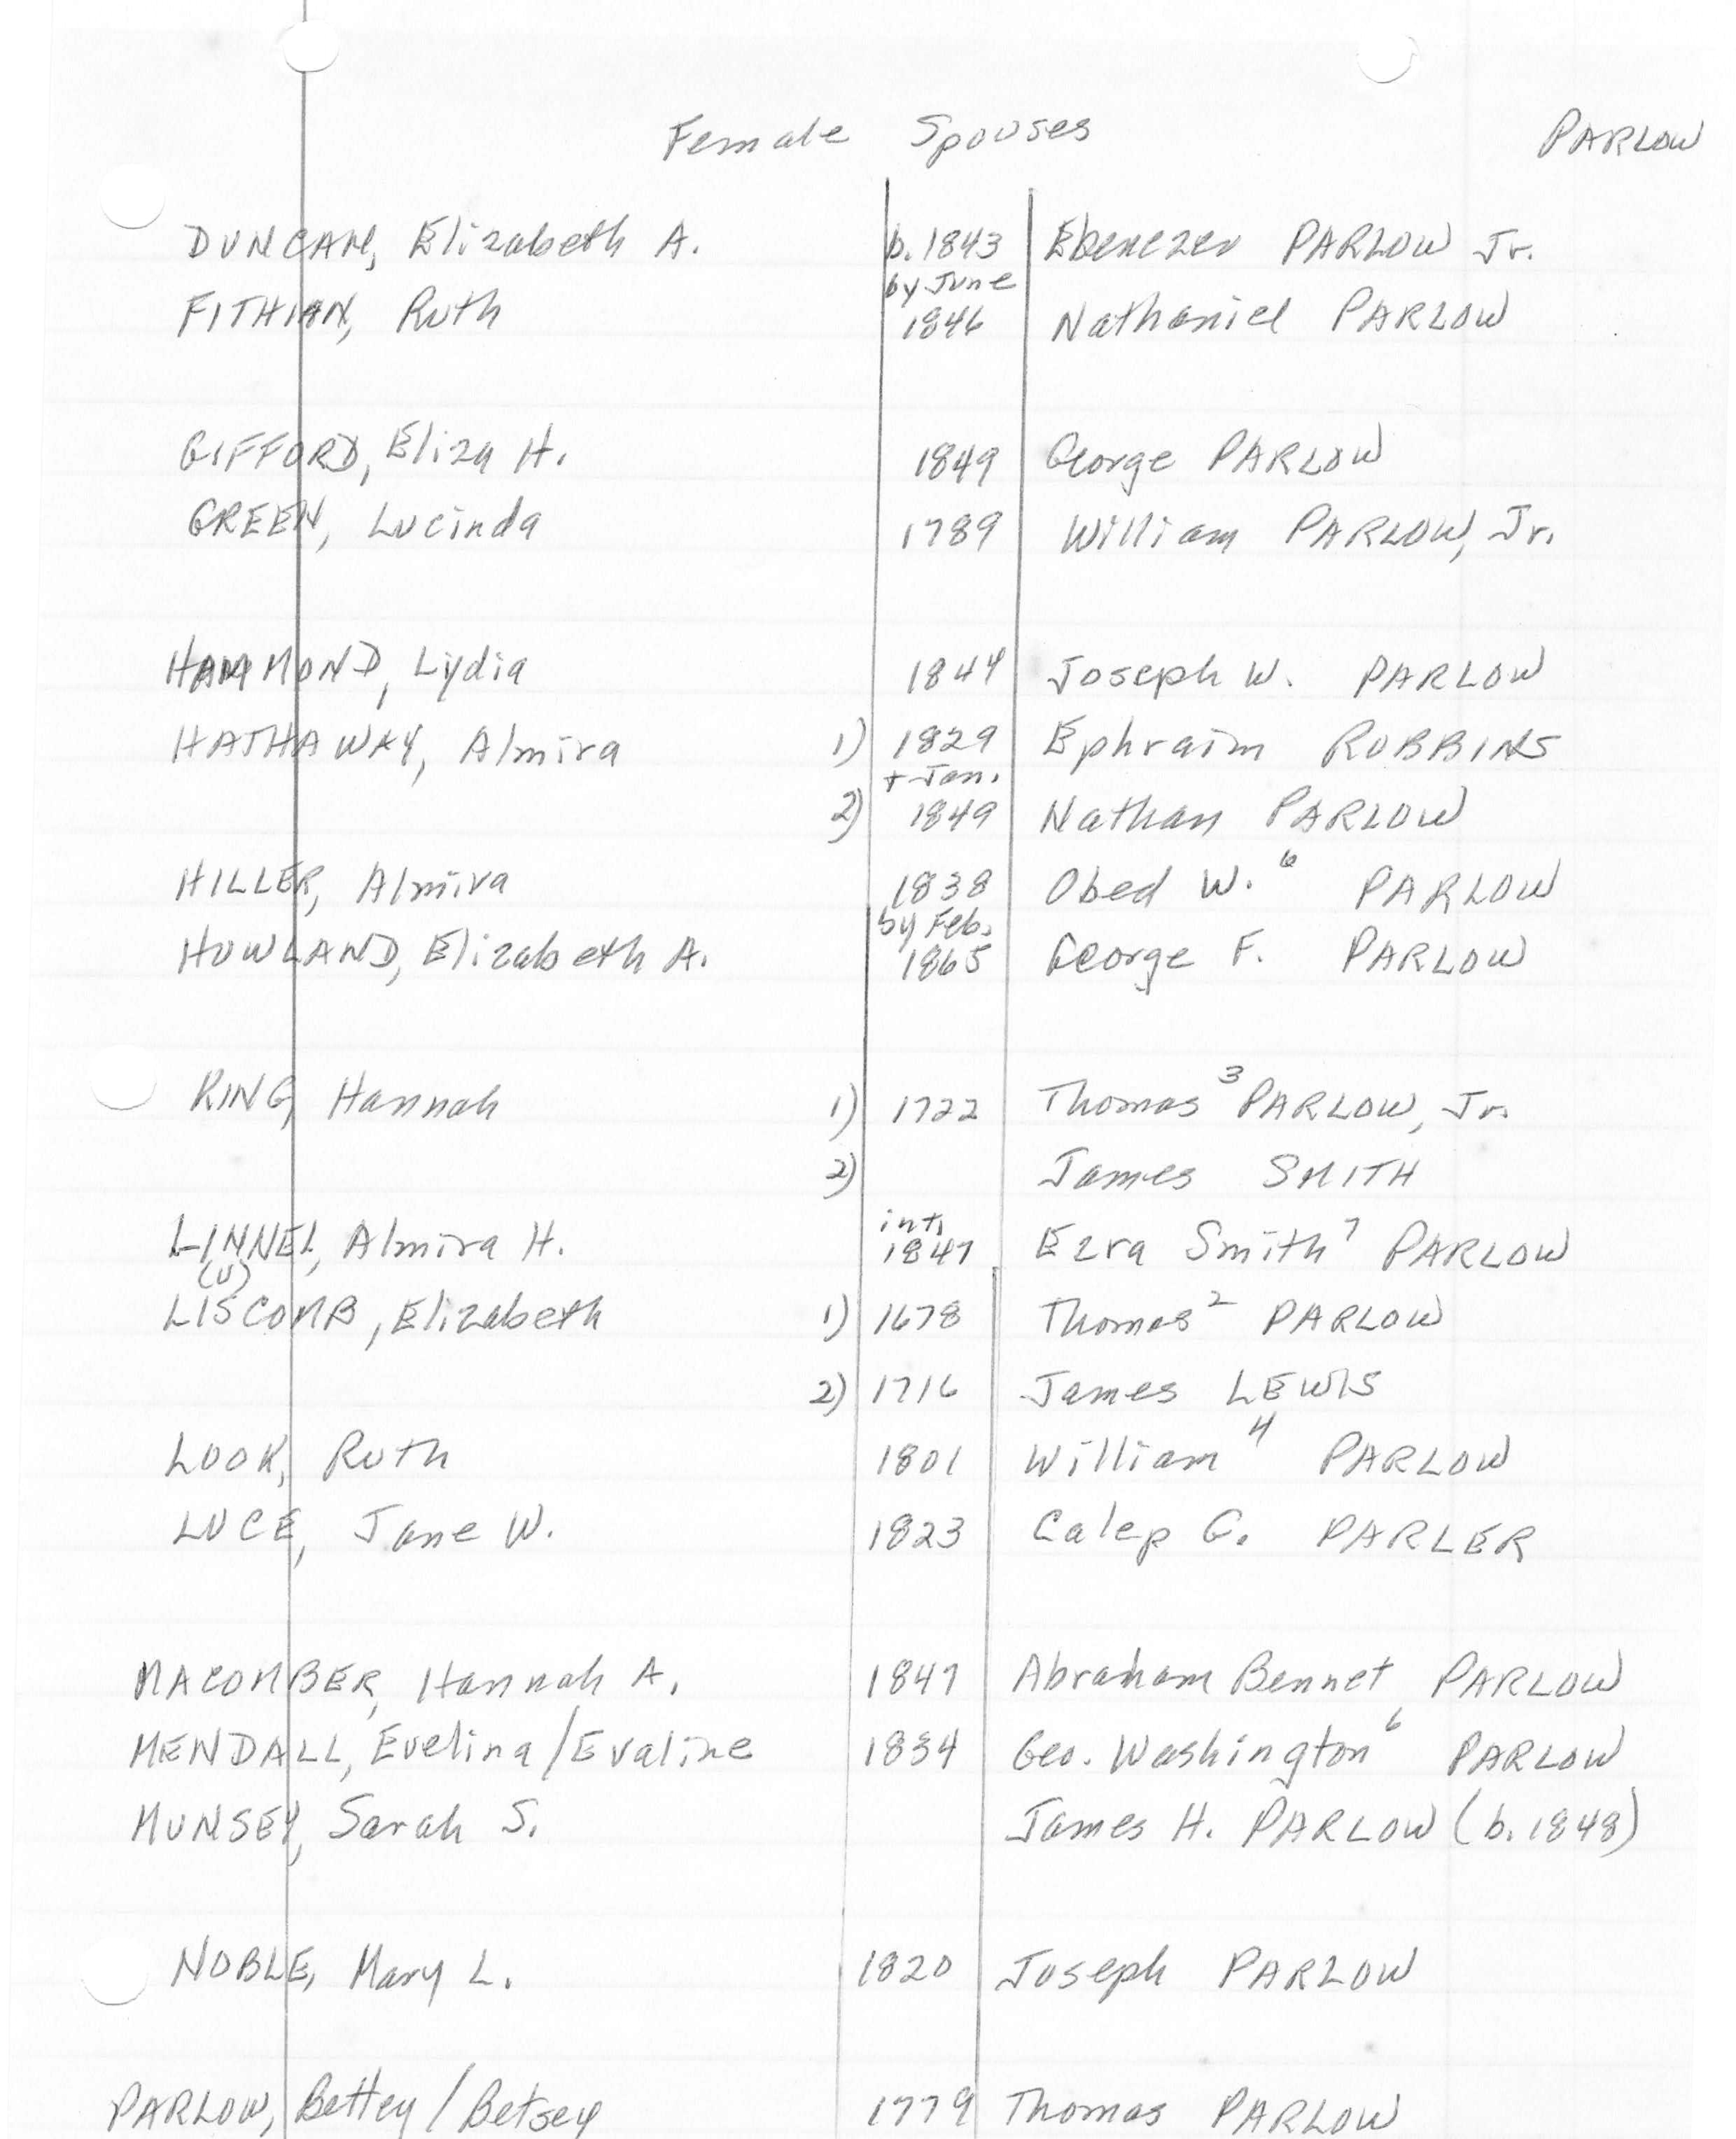 Female Spouses PARLOW
DUNCAN, Elizabeth A. b. 1843 Ebenezer PARLOW Jr.
by June
FITHIAN, Ruth 1846 Nathaniel PARLOW
GIFFORD, Eliza H. 1849 George PARLOW
GREEN, Lucinda 1789 William PARLOW, Jr.
HAMMOND, Lydia 1844 Joseph W. PARLOW
HATHAWAY, Almira 1) 1829 Ephraim ROBBINS
+ Jan.
2) 1849 Nathan PARLOW
HILLER, Almira 1838 Obed W. 6 PARLOW
by Feb.
HOWLAND, Elizabeth A. 1865 George F. PARLOW
RING, Hannah 1) 1722 Thomas 3 PARLOW, Jr.
2) James SMITH
int.
LINNEL, Almira H. 1847 Ezra Smith 7 PARLOW
(U)
LISCOMB, Elizabeth 1) 1678 Thomas 2 PARLOW
2) 1716 James LEWIS
LOOK, Ruth 1801 William 4 PARLOW
LUCE, Jane W. 1823 Calep G. PARLER
MACOMBER, Hannah A. 1847 Abraham Bennet PARLOW
MENDALL, Evelina/Evaline 1834 Geo. Washington 6 PARLOW
MUNSEY, Sarah S. James H. PARLOW (b. 1848)
NOBLE, Mary L. 1820 Joseph PARLOW
PARLOW, Bettey/Betsey 1779 Thomas PARLOW